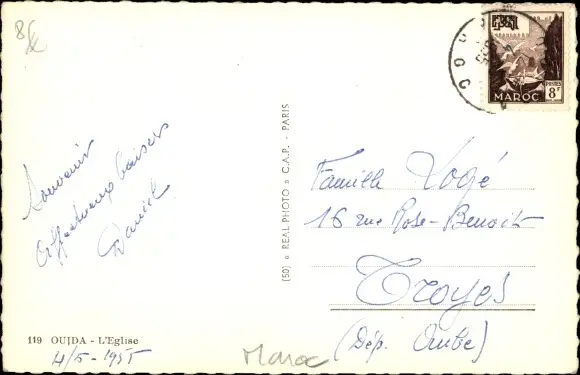 8
Souvenir
Affectueux baisers
Daniel
119 OUJDA - L'Eglise
4/5-1955
(50) REAL PHOTO C.A.P. - PARIS
MAROC
POSTES
8F
Famille Logé
16 rue Rose-Benoit
Troyes
(Dép. Aube)
Maroc